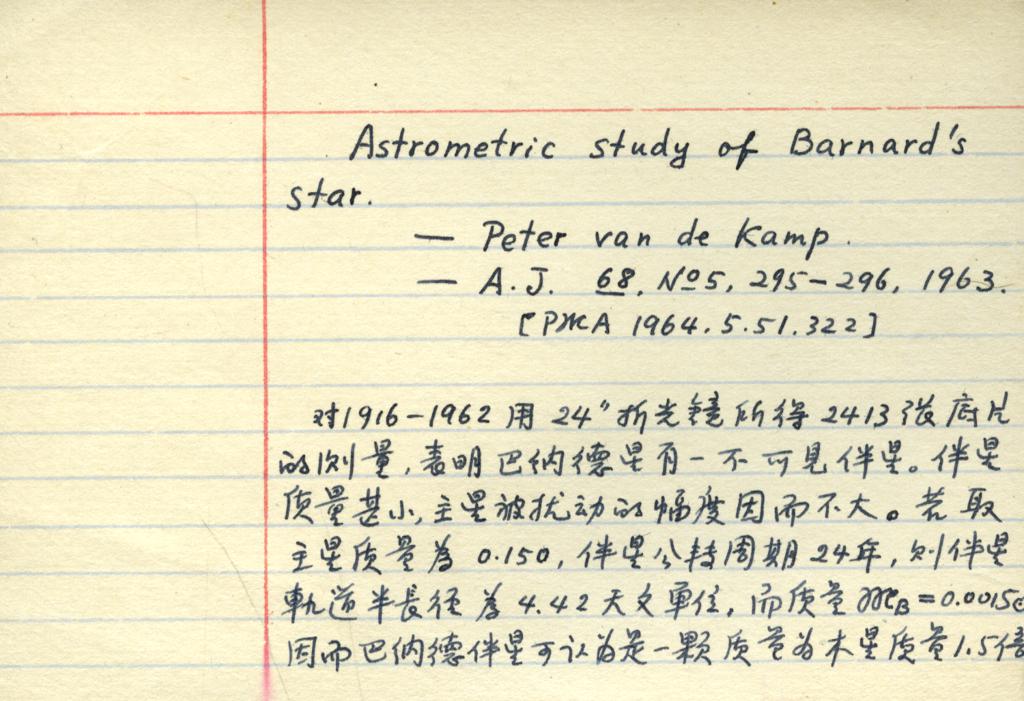 Astrometric study of Barnard's
star.
— Peter van de Kamp.
— A.J. 68, №5, 295-296, 1963.
[РЖА 1964.5.51.322]
对1916-1962用24"折光镜所得2413张底片
的测量,表明巴纳德星有一不可见伴星。伴星
质量甚小,主星被扰动的幅度因而不大。若取
主星质量为0.150,伴星公转周期24年,则伴星
軌道半長径為4.42天文單位,而质量𝔐B=0.0015
因而巴纳德伴星可认为是一颗质量为木星质量1.5倍